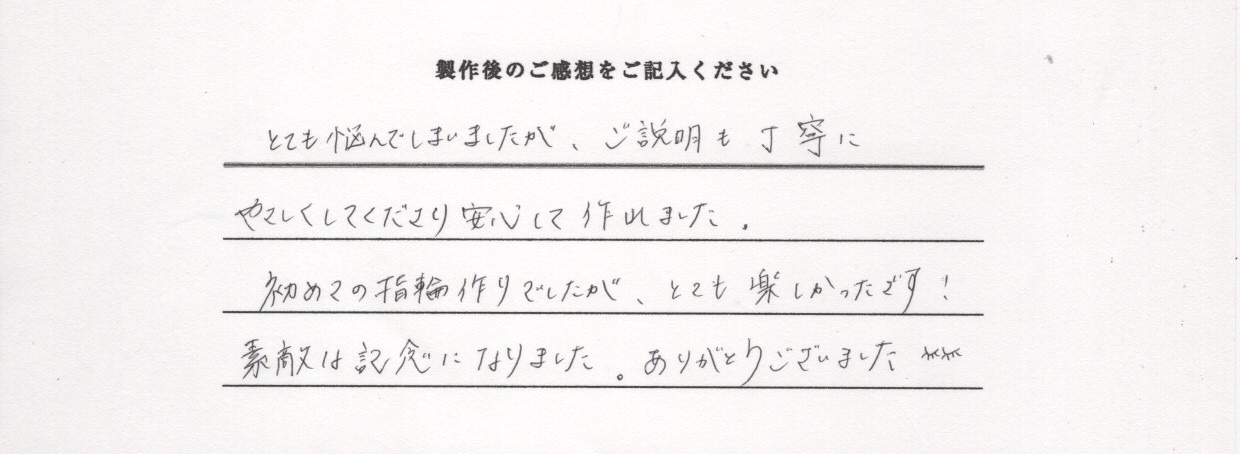 製作後のご感想をご記入ください
とても悩んでしまいましたが、ご説明も丁寧に
やさしくしてくださり安心して作れました。
初めての指輪作りでしたが、とても楽しかったです！
素敵な記念になりました。ありがとうございました